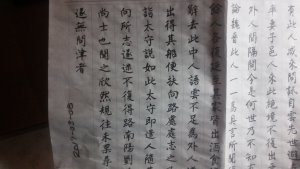 有此人咸來問訊自雲先世避
率妻子邑人來此絕境不復出
外人間隔問今是何世乃不知
論魏晉此人一一為具言所聞
餘人各復延至其家皆出酒食
辭去此中人語雲不足為外人道
出得其船便扶向路處處志之
詣太守說如此太守即遣人隨其
向所志遂迷不復得路南陽劉
尚士也聞之欣然規往未果尋
遂無問津者